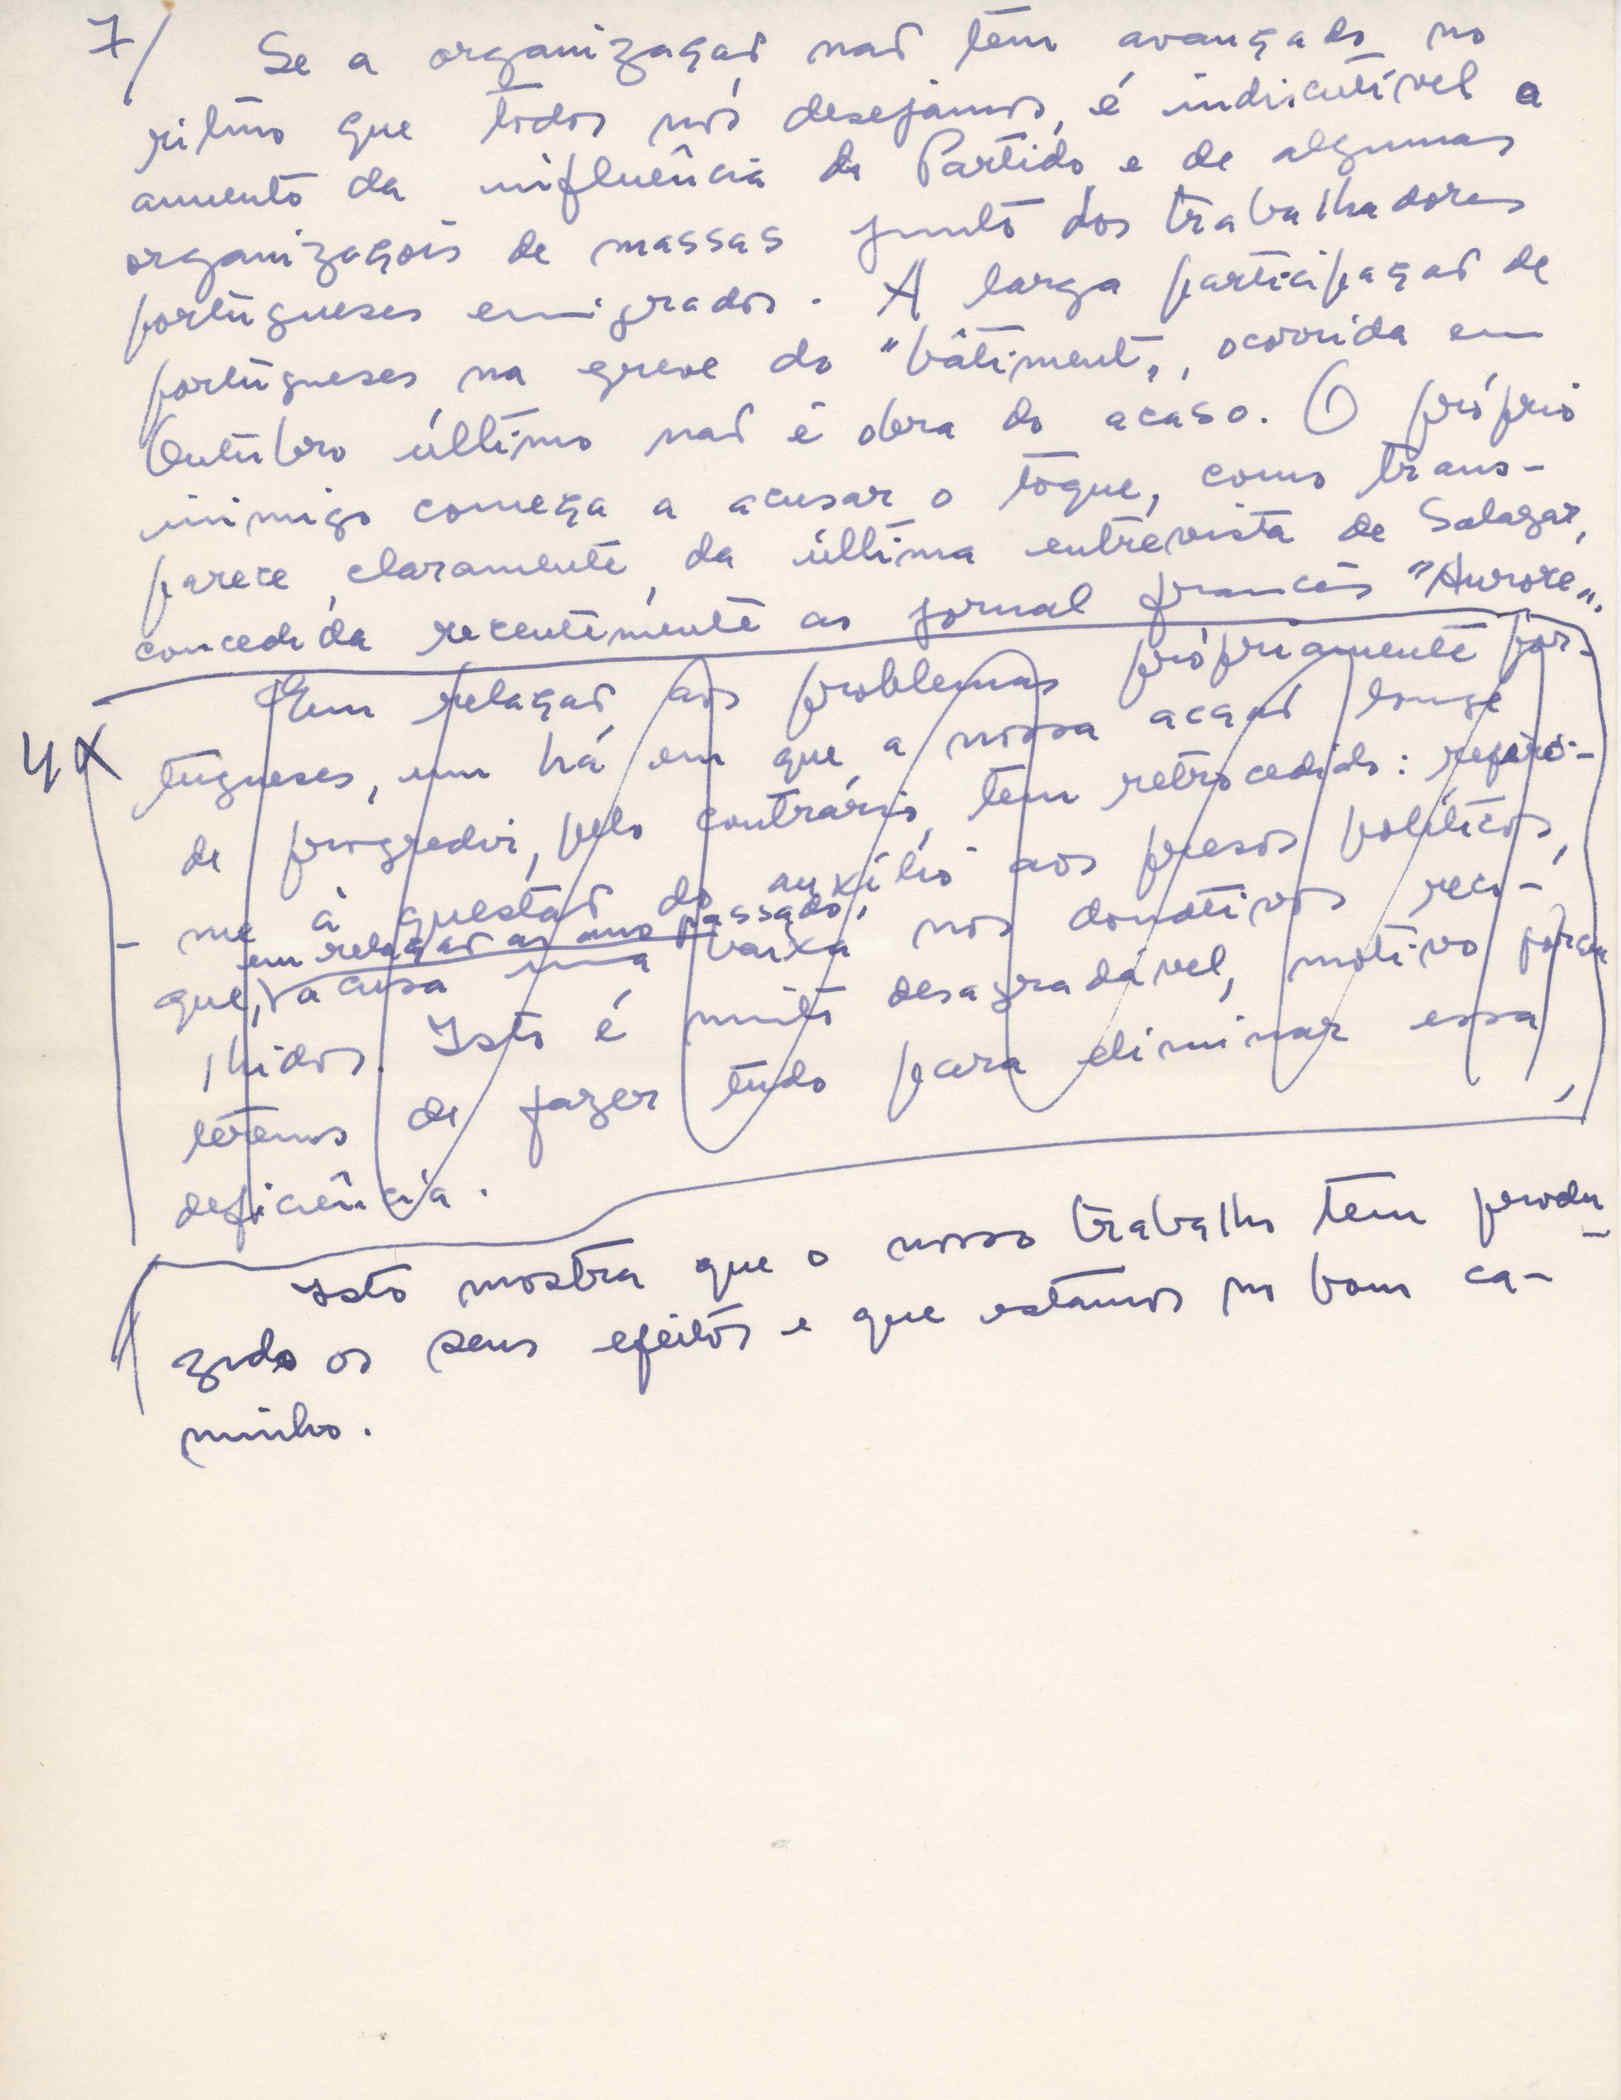 7/ Se a organização não tem avançado no
ritmo que todos nós desejamos, é indiscutível o
aumento da influência do Partido e de algumas
organizações de massas junto dos trabalhadores
portugueses emigrados. A larga participação de
portugueses na greve do "bâtiment", ocorrida em
Outubro último não é obra do acaso. O próprio
inimigo começa a acusar o toque, como trans-
parece, claramente, da última entrevista de Salazar,
concedida recentemente ao jornal francês "Aurore".
Em relação aos problemas pròpriamente por-
tugueses, um há em que a nossa acção longe
de progredir, pelo contrário, tem retrocedido: refiro-
me à questão do auxílio aos presos políticos,
em relação ao ano passado,
que, acusa uma baixa nos donativos reco-
lhidos. Isto é muito desagradável, motivo porque
teremos de fazer tudo para eliminar essa
deficiência.
Isto mostra que o nosso trabalho tem produ-
zido os seus efeitos e que estamos no bom ca-
minho.